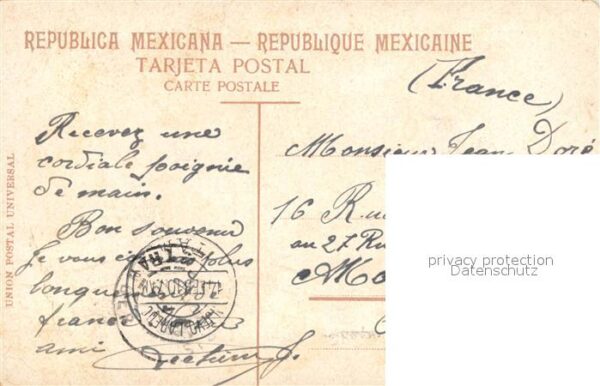 REPUBLICA MEXICANA — REPUBLIQUE MEXICAINE
TARJETA POSTAL
CARTE POSTALE
UNION POSTAL UNIVERSAL
(France)
Recevez une
cordiale poignie
de main.
Bon souvenir
Je vous plus
france
ami
Monsieur Jean Doré
16 Ru
au 27 Ru
privacy protection
Datenschutz